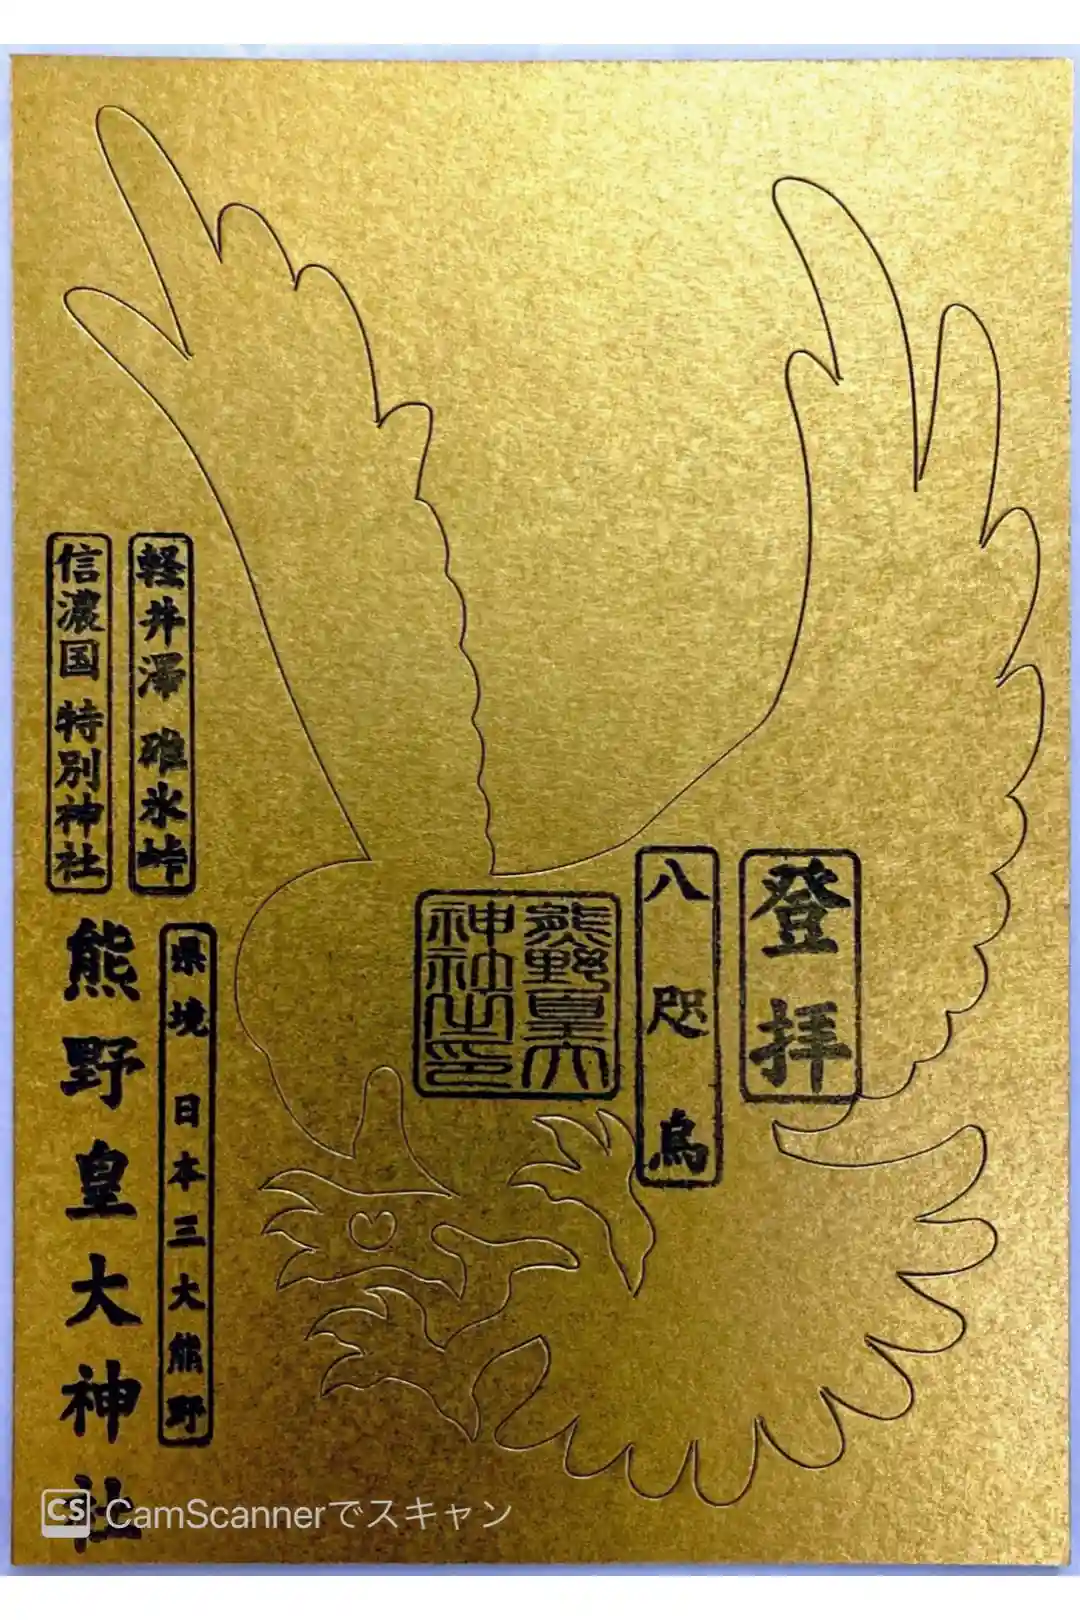 登拝
八咫烏
熊野皇大
神社之印
軽井澤 碓氷峠
信濃国 特別神社
県境 日本三大熊野
熊野皇大神社
CS CamScannerでスキャン